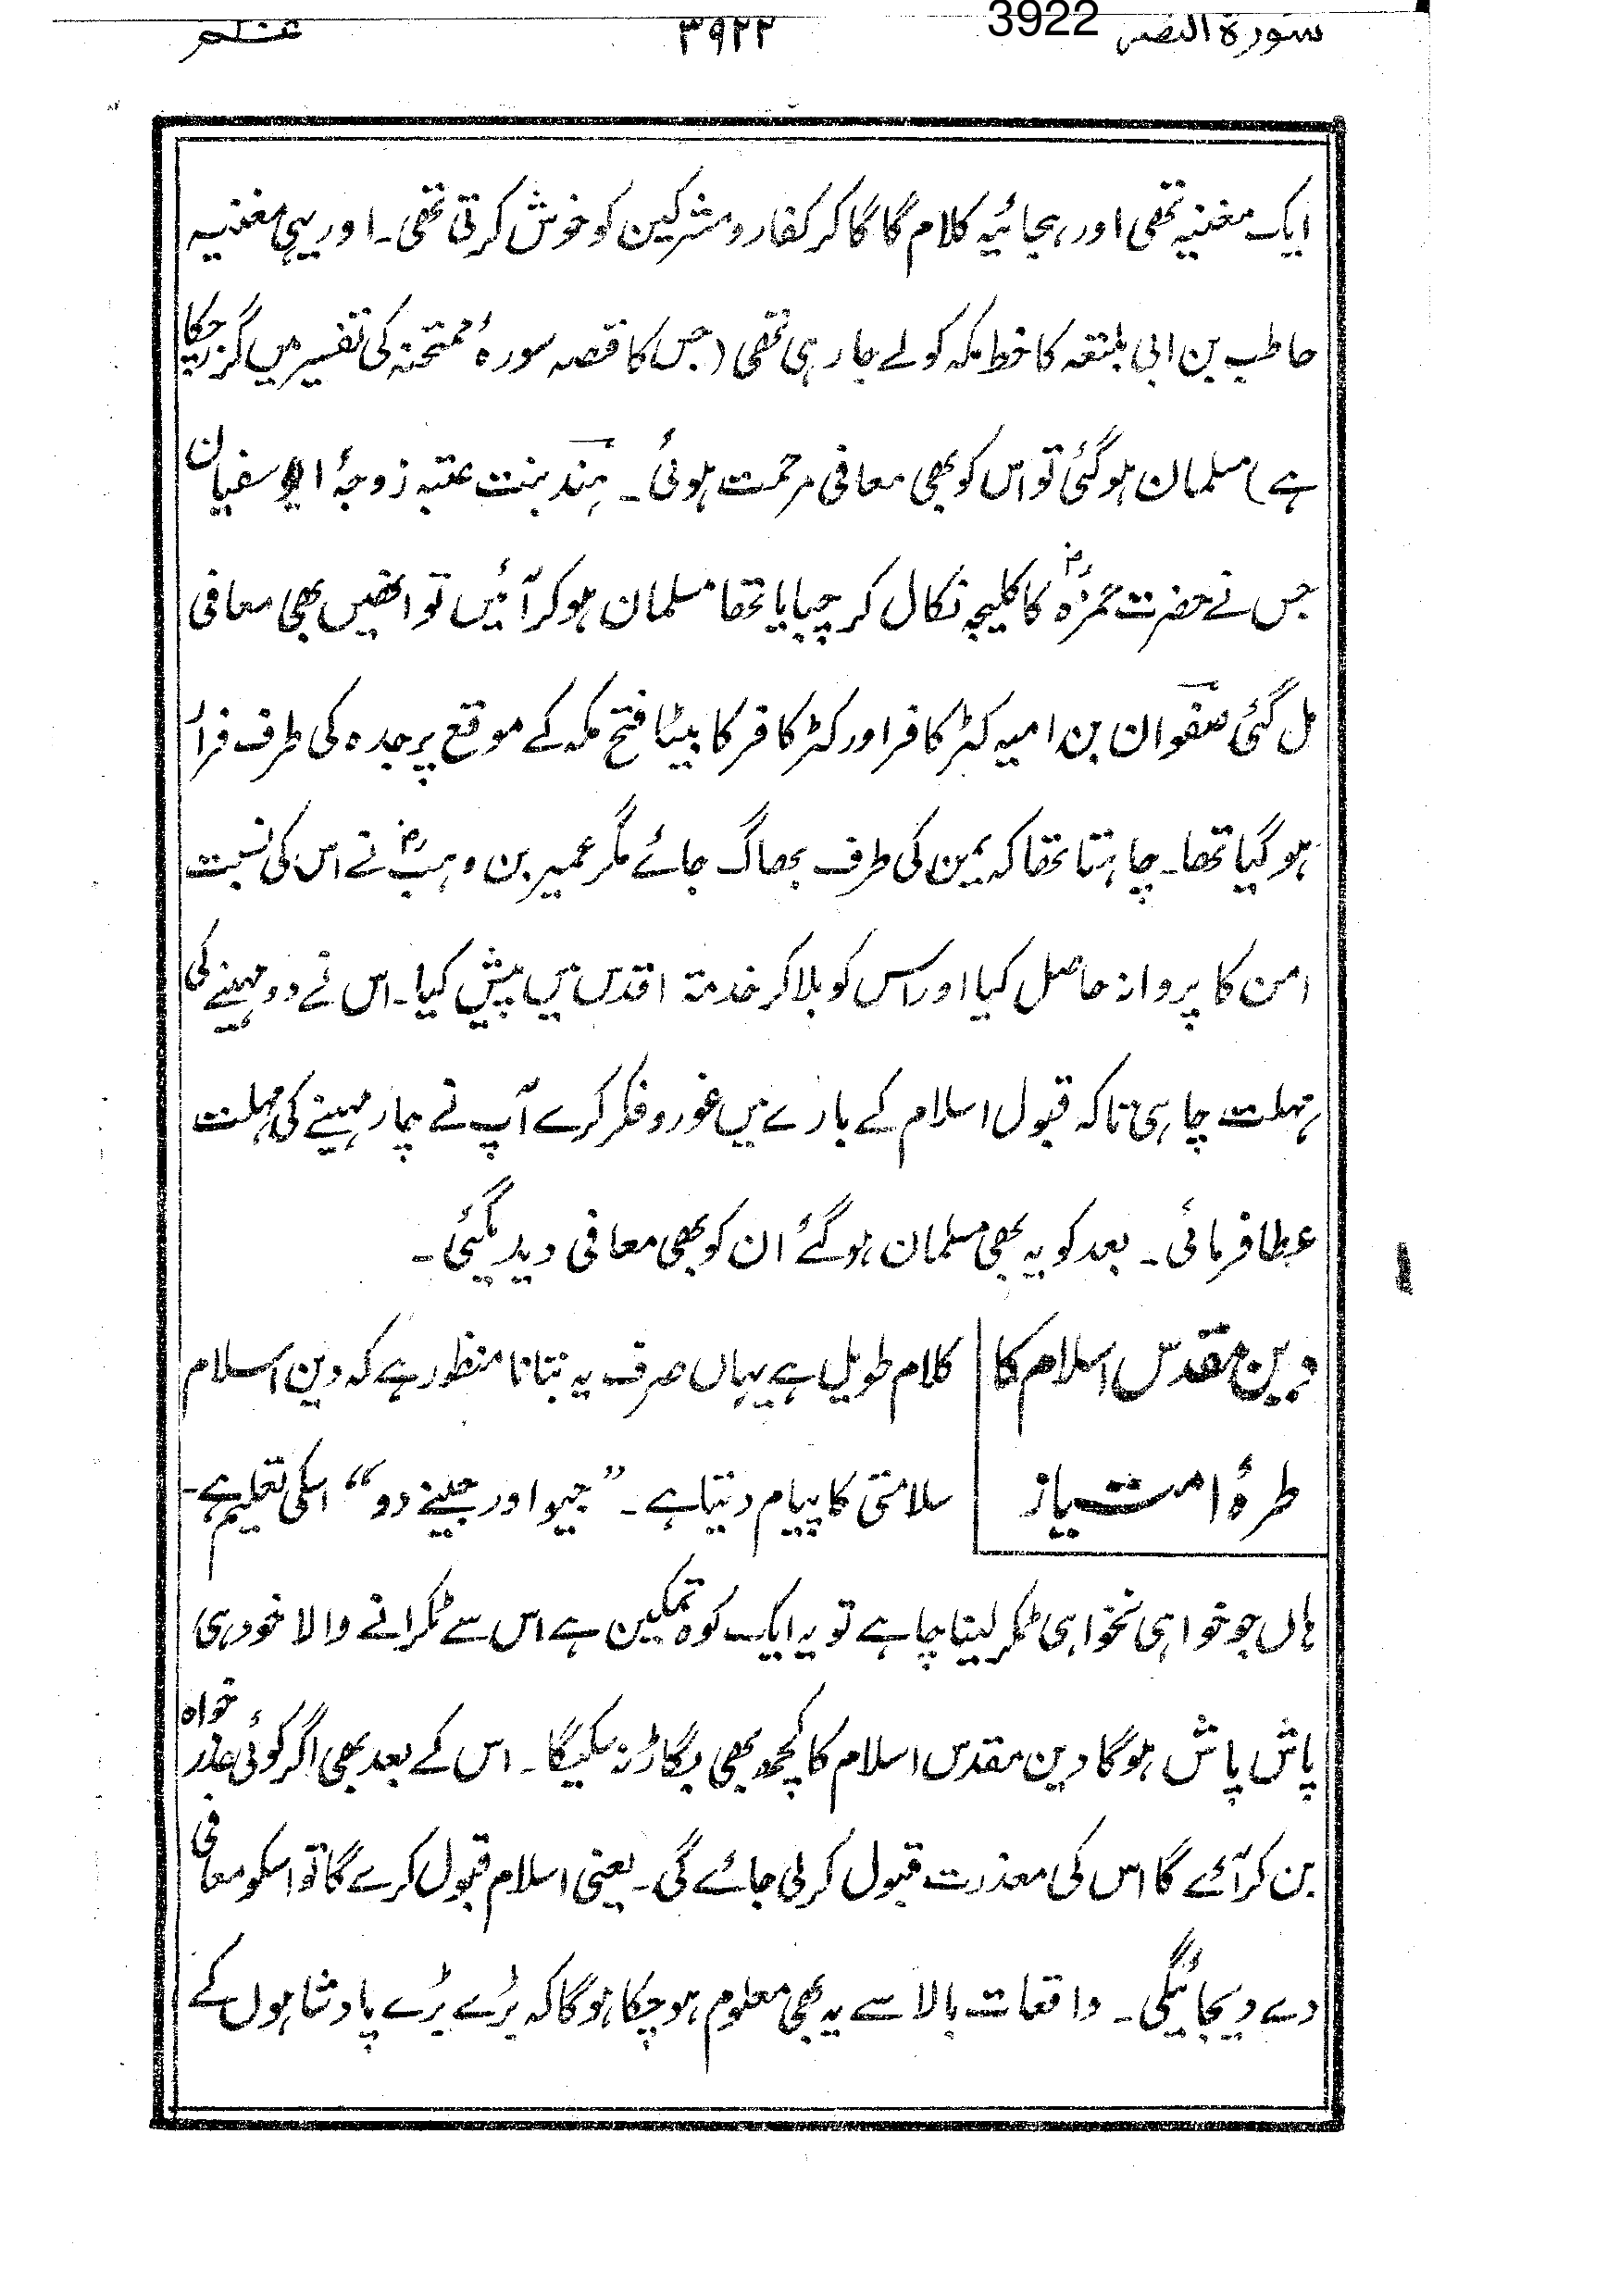 سورۃ النصر 3922 ۳۹۲۲ عــم
ایک مغنیہ تھی اور ہجائیہ کلام گا گا کر کفار و مشرکین کو خوش کرتی تھی۔ اور یہی مغنیہ
حاطب بن ابی بلتعہ کا خط مکہ کو لے جا رہی تھی (جس کا قصہ سورہ ممتحنہ کی تفسیر میں گزر چکا
ہے) مسلمان ہو گئی تو اس کو بھی معافی مرحمت ہوئی۔ ہند بنت عتبہ زوجۂ ابو سفیان
جس نے حضرت حمزہؓ کا کلیجہ نکال کر چبایا تھا مسلمان ہو کر آئیں تو انھیں بھی معافی
مل گئی صفوان بن امیہ کٹر کافر اور کٹر کافر کا بیٹا فتح مکہ کے موقع پر جدہ کی طرف فرار
ہو گیا تھا۔ چاہتا تھا کہ یمن کی طرف بھاگ جائے مگر عمیر بن وہبؓ نے اس کی نسبت
امن کا پروانہ حاصل کیا اور اس کو بلا کر خدمۃ اقدس میں پیش کیا۔ اس نے دو مہینے کی
مہلت چاہی تاکہ قبول اسلام کے بارے میں غور و فکر کرے آپ نے چار مہینے کی مہلت
عطا فرمائی۔ بعد کو یہ بھی مسلمان ہو گئے ان کو بھی معافی دیدیگئی۔
دین مقدس اسلام کا
طرۂ امتیاز
کلام طویل ہے یہاں صرف یہ بتانا منظور ہے کہ دین اسلام
سلامتی کا پیام دیتا ہے۔ ”جیو اور جینے دو“ اسکی تعلیم ہے۔
ہاں جو خواہی نخواہی ٹکر لینا چاہے تو یہ ایک کوہ تمکین ہے اس سے ٹکرانے والا خود ہی
پاش پاش ہو گا دین مقدس اسلام کا کچھ بھی بگاڑ نہ سکیگا۔ اس کے بعد بھی اگر کوئی عذر خواہ
بن کر آئے گا اس کی معذرت قبول کر لی جائے گی۔ یعنی اسلام قبول کرے گا تو اسکو معافی
دے دیجائیگی۔ واقعات بالا سے یہ بھی معلوم ہو چکا ہو گا کہ بڑے بڑے پادشاہوں کے